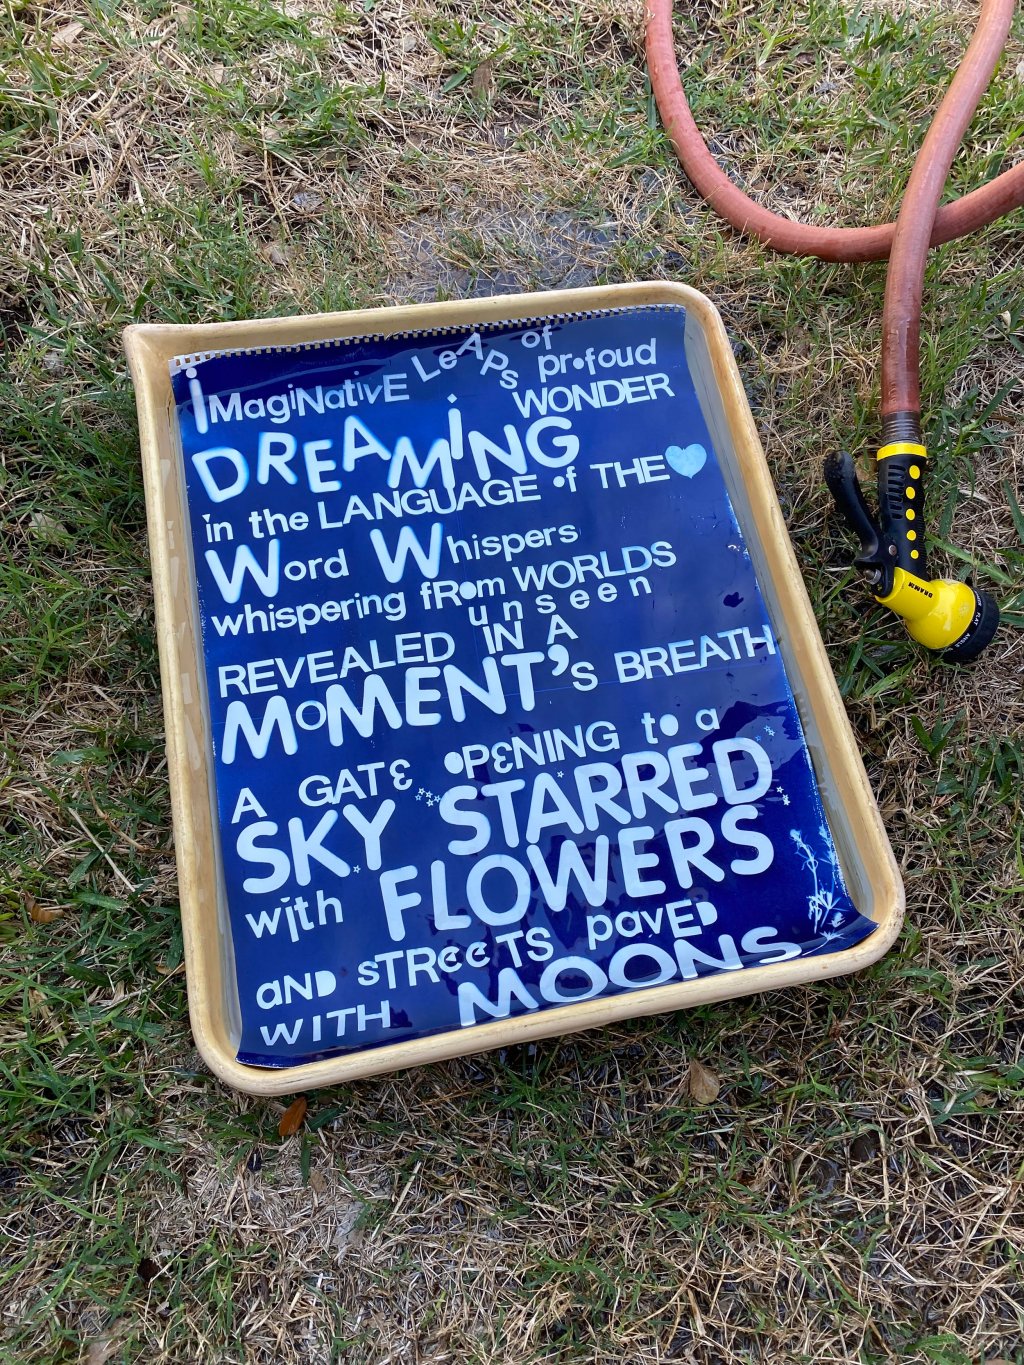 iMagiNativE LeAPs of
profoud
WONDER
DREAMiNG
in the LANGUAGE of THE
Word Whispers
whispering fRom WORLDS
unseen
REVEALED IN A
MoMENT's BREATH
A GATE OPENING to a
SKY STARRED
with FLOWERS
aND sTREETS pavED
WITH MOONS
DRAMM
FLAT